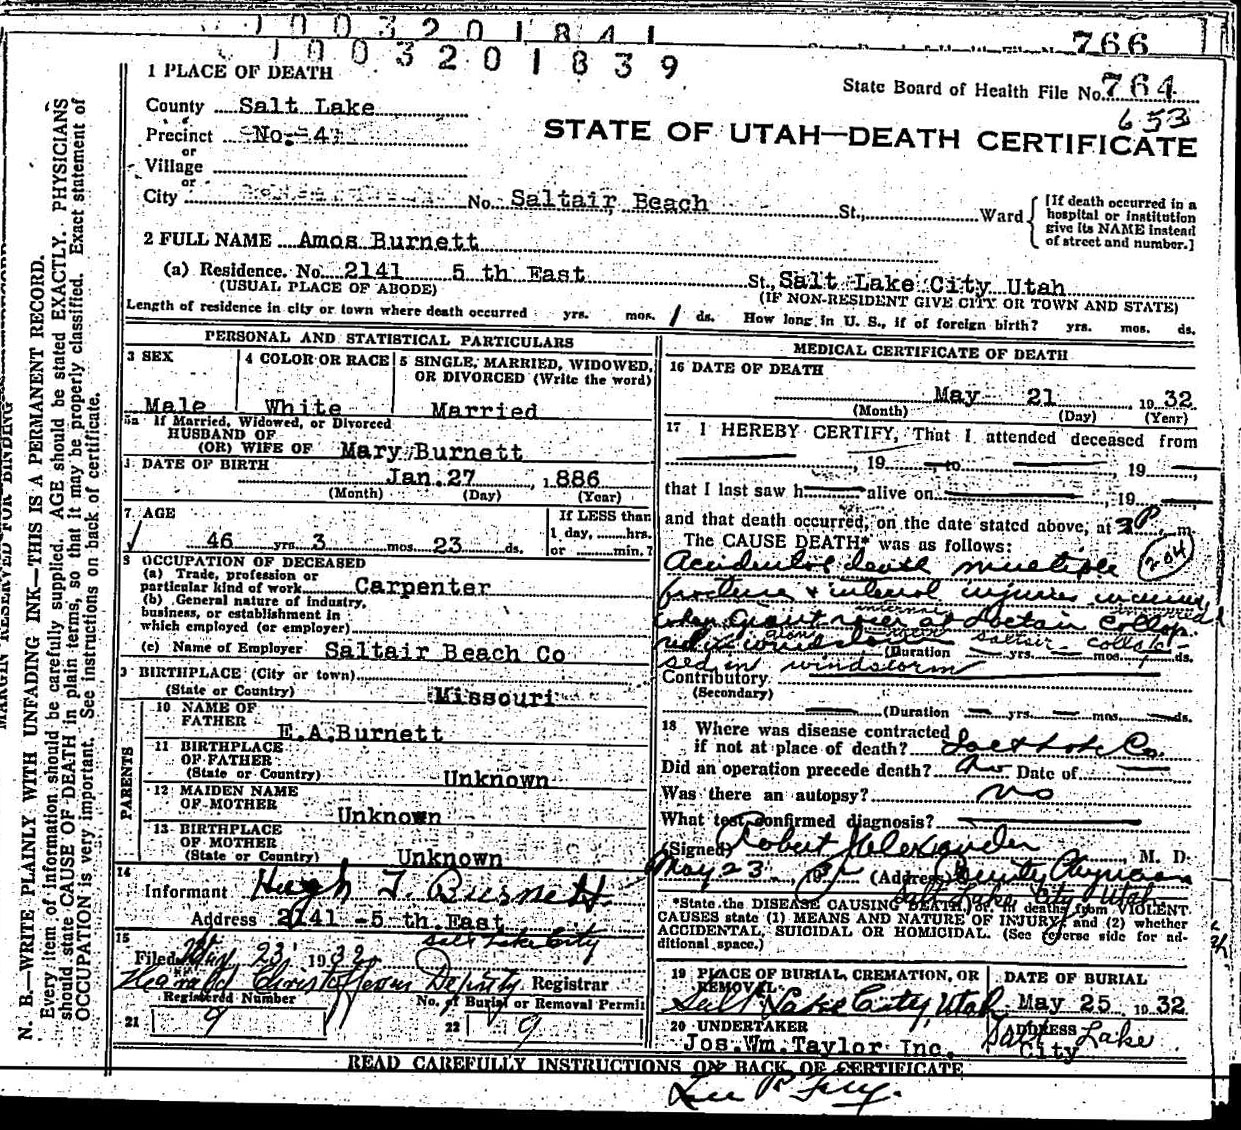 1003201841
766
1003201839
1 PLACE OF DEATH
State Board of Health File No. 764
653
County Salt Lake
Precinct No. 4
or
Village
or
City
STATE OF UTAH—DEATH CERTIFICATE
No. Saltair Beach St., Ward
[If death occurred in a hospital or institution give its NAME instead of street and number.]
2 FULL NAME Amos Burnett
(a) Residence. No. 2141 5 th East St., Salt Lake City Utah
(USUAL PLACE OF ABODE) (IF NON-RESIDENT GIVE CITY OR TOWN AND STATE)
Length of residence in city or town where death occurred yrs. mos. 1 ds. How long in U. S., if of foreign birth? yrs. mos. ds.
PERSONAL AND STATISTICAL PARTICULARS
3 SEX
Male
4 COLOR OR RACE
White
5 SINGLE, MARRIED, WIDOWED,
OR DIVORCED (Write the word)
Married
5a If Married, Widowed, or Divorced
HUSBAND OF
(OR) WIFE OF Mary Burnett
DATE OF BIRTH
Jan. 27, 1886
(Month) (Day) (Year)
7 AGE
46 yrs. 3 mos. 23 ds.
If LESS than
1 day, hrs.
or min.?
8 OCCUPATION OF DECEASED
(a) Trade, profession or
particular kind of work Carpenter
(b) General nature of industry,
business, or establishment in
which employed (or employer)
(c) Name of Employer Saltair Beach Co
9 BIRTHPLACE (City or town)
(State or Country) Missouri
PARENTS
10 NAME OF
FATHER E.A.Burnett
11 BIRTHPLACE
OF FATHER
(State or Country) Unknown
12 MAIDEN NAME
OF MOTHER
Unknown
13 BIRTHPLACE
OF MOTHER
(State or Country) Unknown
14
Informant Hugh T. Burnett
Address 2141 -5 th.East
Salt Lake City
15
Filed May 23, 1932
Harold Christofferson Deputy Registrar
Registered Number
21 9
No. of Burial or Removal Permit
22 9
MEDICAL CERTIFICATE OF DEATH
16 DATE OF DEATH
May 21, 1932
(Month) (Day) (Year)
17 I HEREBY CERTIFY, That I attended deceased from
, 19 to 19
that I last saw h alive on , 19
and that death occurred, on the date stated above, at 3 P. m.
The CAUSE DEATH* was as follows:
204
Accidental death multiple
fracture & internal injuries incurred
internal incurred
when giant racer at Saltair collap-
giant racer saltair collap-
(Duration yrs. mos. ds.
sed in windstorm
Contributory
(Secondary)
(Duration yrs. mos. ds.
18 Where was disease contracted
if not at place of death? Salt Lake Co.
Did an operation precede death? no Date of
Was there an autopsy? no
What test confirmed diagnosis?
(Signed) Robert Alexander, M. D.
May 23, 19 (Address) County Physician
Salt Lake City Utah
*State the DISEASE CAUSING DEATH, or in deaths from VIOLENT
CAUSES state (1) MEANS AND NATURE OF INJURY and (2) whether
ACCIDENTAL, SUICIDAL OR HOMICIDAL. (See reverse side for ad-
ditional space.)
19 PLACE OF BURIAL, CREMATION, OR
REMOVAL
Salt Lake City, Utah
DATE OF BURIAL
May 25 1932
20 UNDERTAKER
Jos.Wm.Taylor Inc.
ADDRESS
Salt Lake
City
READ CAREFULLY INSTRUCTIONS ON BACK OF CERTIFICATE
MARGIN RESERVED FOR BINDING
N. B.—WRITE PLAINLY WITH UNFADING INK—THIS IS A PERMANENT RECORD.
Every item of information should be carefully supplied. AGE should be stated EXACTLY. PHYSICIANS
should state CAUSE OF DEATH in plain terms, so that it may be properly classified. Exact statement of
OCCUPATION is very important. See instructions on back of certificate.